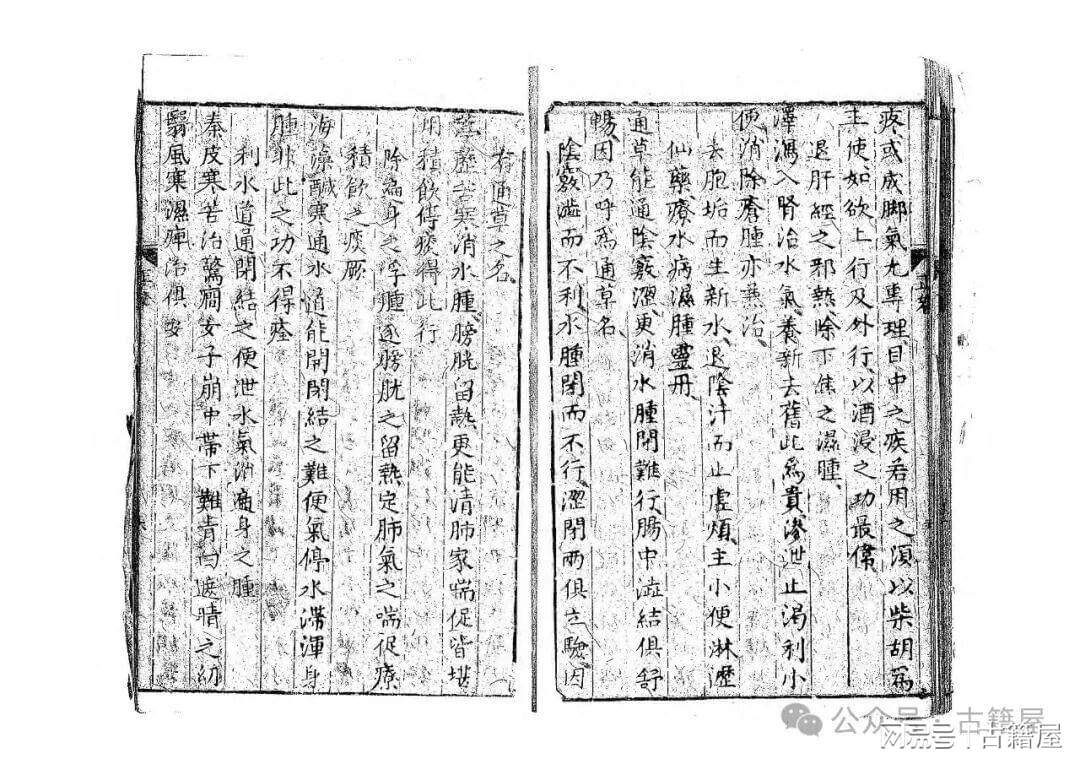 疼或成脚氣尤專理目中之疾若用之須以柴胡爲
主使如欲上行及外行以酒浸之功最偉
退肝經之邪熱除下焦之濕腫
澤瀉入腎治水氣養新去舊此爲貴滲泄止渴利小
便消除瘡腫亦兼治
去胞垢而生新水退陰汗而止虛煩主小便淋瀝
仙藥療水病濕腫靈丹
通草能通陰竅澀更消水腫閉難行腸中澁結俱舒
暢因乃呼爲通草名
陰竅澁而不利水腫閉而不行澀閉兩俱立驗因
有通草之名
藶苦寒消水腫膀胱留熱更能清肺家喘促皆堪
用積飲停痰得此行
除遍身之浮腫逐膀胱之留熱定肺氣之喘促療
積飲之痰厥
海藻鹹寒通水道能開閉結之難便氣停水滯渾身
腫非此之功不得痊
利水道通閉結之便泄水氣消遍身之腫
秦皮寒苦治驚癇女子崩中帶下難青白遮睛之幻
翳風寒濕痺治俱安
公众号·古籍屋
网易号 | 古籍屋